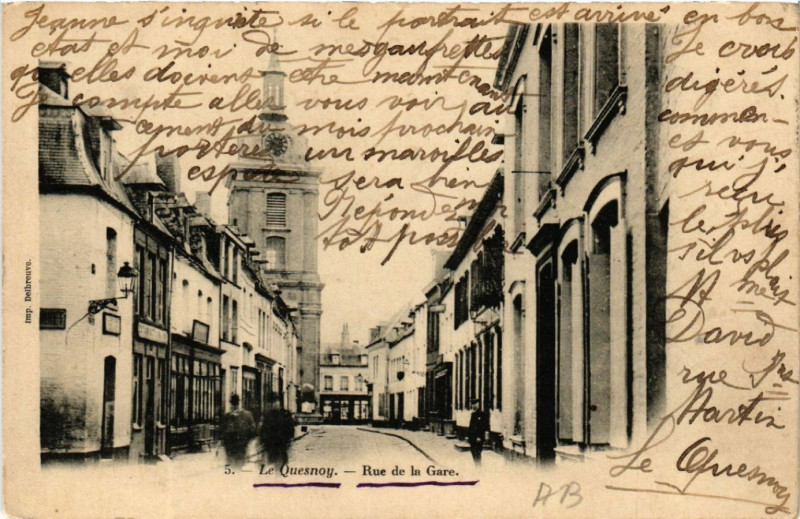 Jeanne s'inquiète si le portrait est arrivé en bon
état et moi de mes gaufrettes Je crois
qu'elles doivent être maintenant digérés.
Je compte aller vous voir au commen-
cement du mois prochain et vous
porterei un maroilles qui j'
espère sera bien reçu
Répondez le plus
tôt s'il vous plait
Mme
David
rue
Martin
Le Quesnoy
Imp. Delbreuve.
5. — Le Quesnoy. — Rue de la Gare.
AB